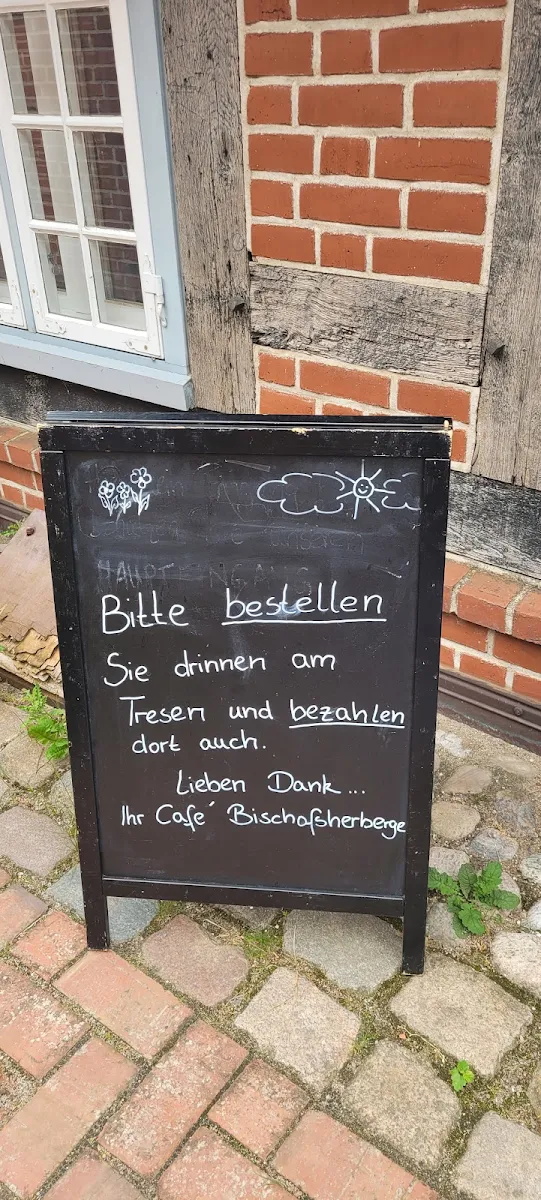 Bitte bestellen
Sie drinnen am
Tresen und bezahlen
dort auch.
Lieben Dank...
Ihr Café Bischofsherberge